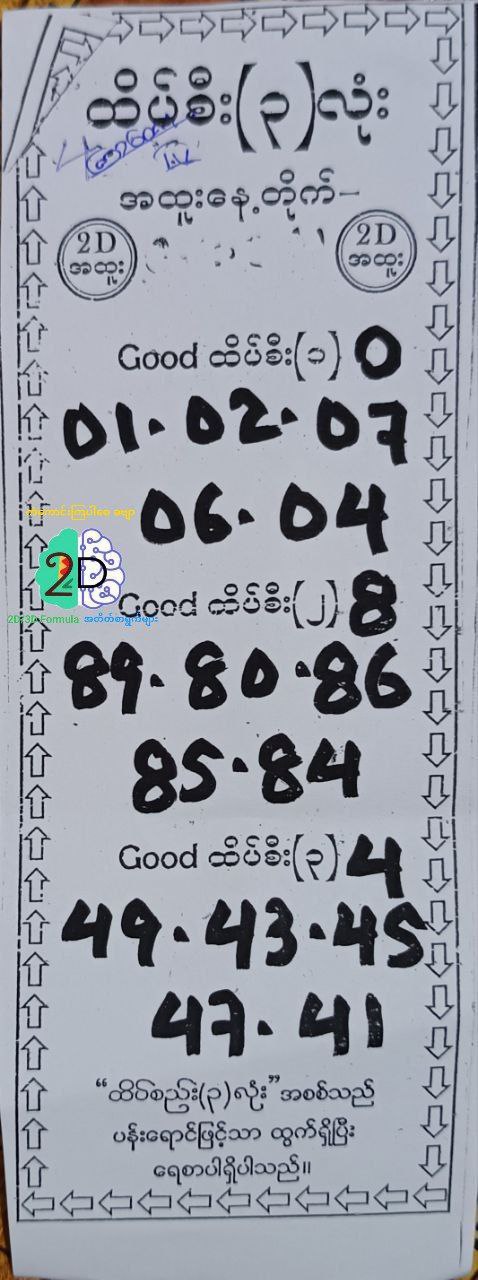 ထိပ်စီး(၃)လုံး
အထူးနေ့တိုက်-
2D
အထူး
2D
အထူး
Good ထိပ်စီး(၁) 0
01. 02. 07
06. 04
ကံကောင်းကြပါစေ ခဗျာ
2D
2D/3D Formula အတိတ်စာရွက်များ
Good ထိပ်စီး(၂) 8
89. 80. 86
85. 84
Good ထိပ်စီး(၃) 4
49. 43. 45
47. 41
“ထိပ်စည်း(၃)လုံး” အစစ်သည်
ပန်းရောင်ဖြင့်သာ ထွက်ရှိပြီး
ရေစာပါရှိပါသည်။